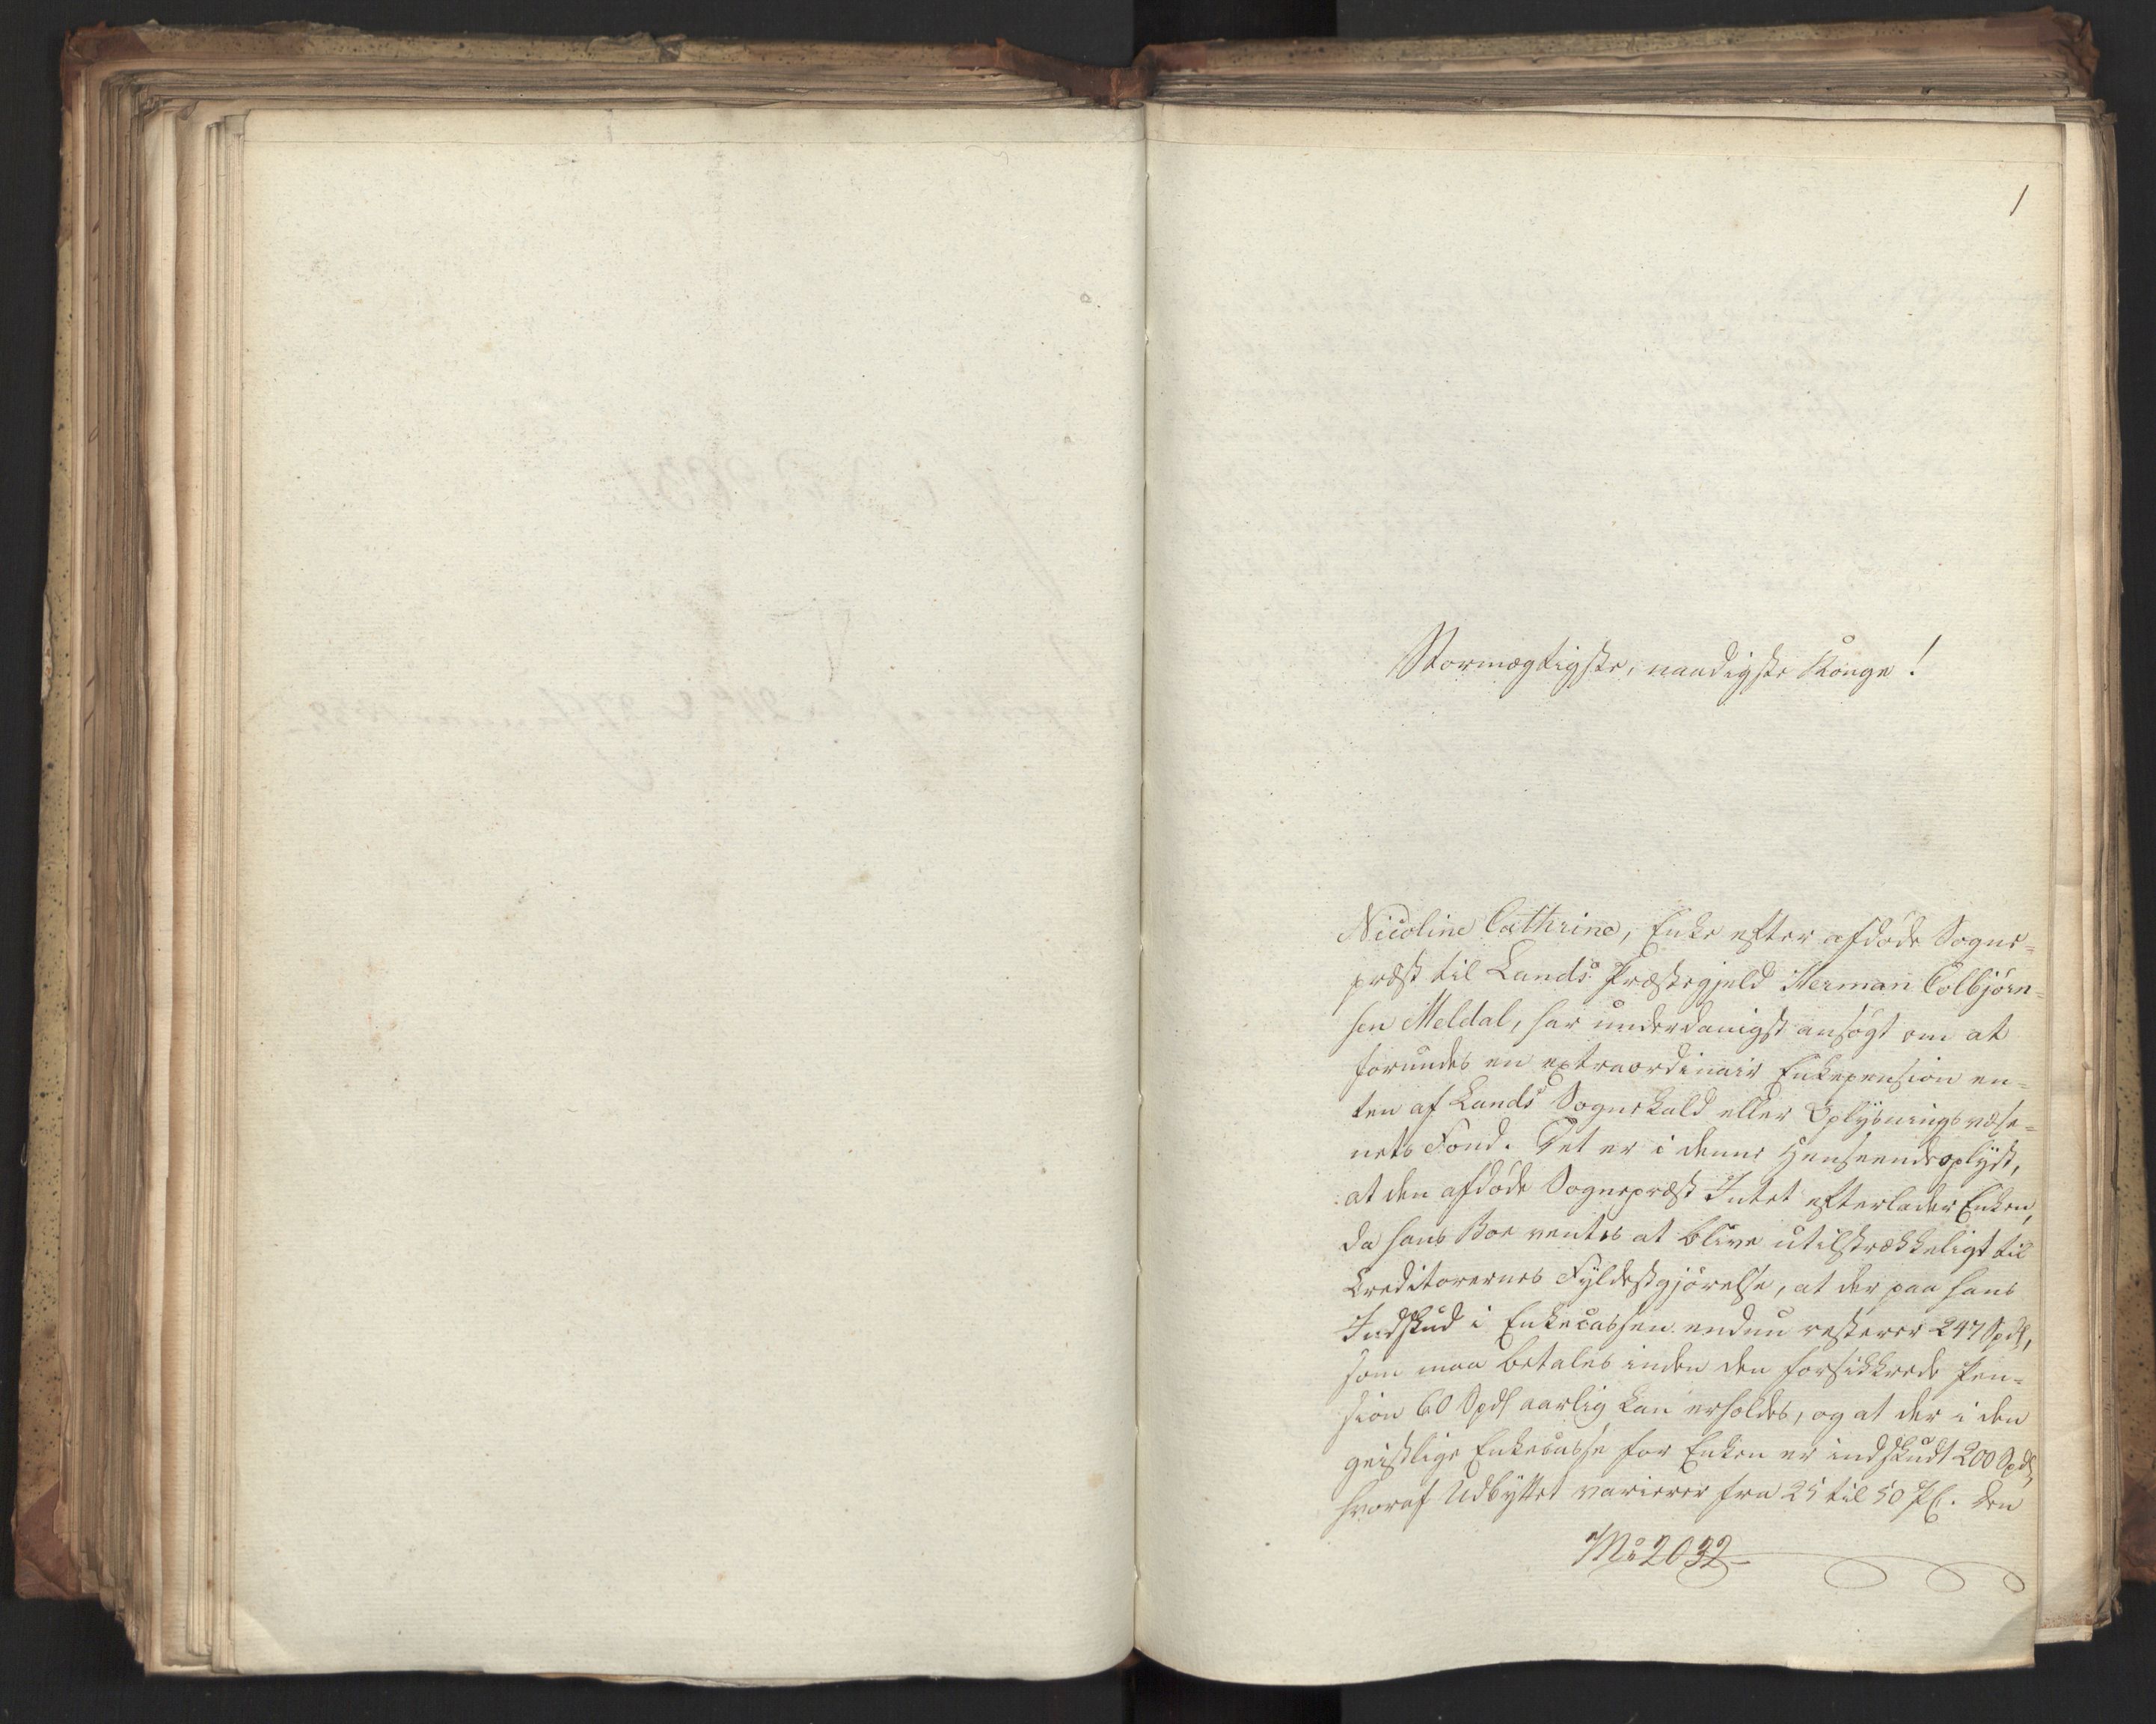 1
Stormægtigste, naadigste Konge!
Nicoline Cathrine, Enke efter afdøde Sogne=
præst til Lands Præstegjeld Herman Colbjørn=
sen Meldal, har underdanigst ansøgt om at
forundes en extraordinair Enkepension en=
ten af Lands Sognekald eller Oplysningsvæse=
nets Fond. Det er i denne Henseende oplyst,
at den afdøde Sognepræst Intet efterlader Enken,
da hans Boe ventes at blive utilstrækkeligt til
Creditorernes Fyldestgjørelse, at der paa hans
Indskud i Enkecassen endnu resterer 247 Spdl,
som maa betales inden den forsikkrede Pen=
sion 60 Spdl aarlig kan erholdes, og at der i den
geistlige Enkecasse for Enken er indskudt 200 Spdl,
hvoraf Udbyttet varierer fra 25 til 50 pC. Den
No 2032